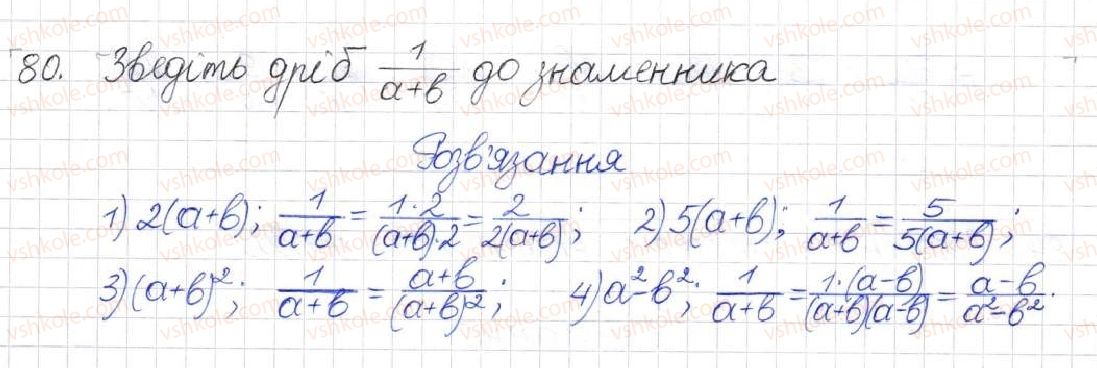 80. Зведіть дріб 1/(a+b) до знаменника
Розв'язання
1) 2(a+b); 1/(a+b) = (1·2)/((a+b)·2) = 2/(2(a+b)); 2) 5(a+b); 1/(a+b) = 5/(5(a+b));
3) (a+b)²; 1/(a+b) = (a+b)/(a+b)²; 4) a²-b²; 1/(a+b) = (1·(a-b))/((a+b)(a-b)) = (a-b)/(a²-b²).
vshkole.com